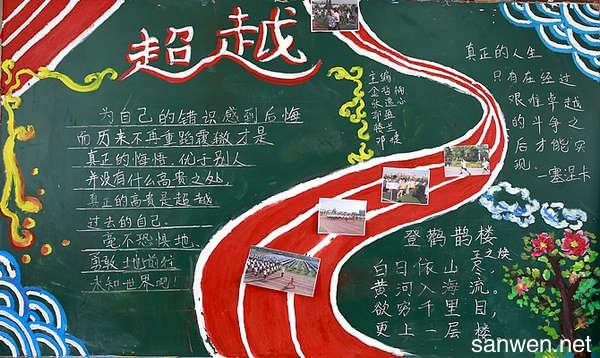 超越
为自己的错误感到后悔
而历来不再重蹈覆辙才是
真正的悔悟。优于别人
并没有什么高贵之处,
真正的高贵是超越
过去的自己.
毫不恐惧地、
勇敢地前往
未知世界吧!
主编
真正的人生
只有在经过
艰难卓越
的斗争之
后才能实
现.
—塞涅卡
登鹳鹊楼
王之焕
白日依山尽,
黄河入海流。
欲穷千里目,
更上一层楼
sanwen.net